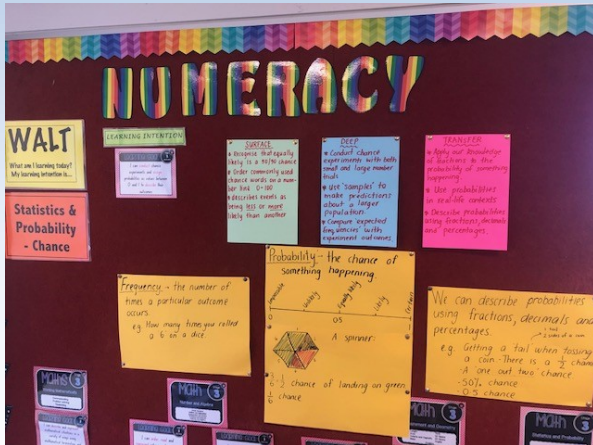 NUMERACY
WALT
What am I learning today?
My learning intention is...
Statistics &
Probability
- Chance
LEARNING INTENTION
SURFACE
Recognise that equally
likely is a 50/50 chance
Order commonly used
chance words on a num-
ber line 0-100
describes events as
being less or more
likely than another
DEEP
Conduct chance
experiments with both
small and large number
trials
Use 'samples' to
make predictions
about a larger
population.
Compare 'expected
frequencies' with
experiment outcomes.
TRANSFER
Apply our knowledge
of fractions to the
probability of something
happening
Use probabilities
in real-life contexts
Describe probabilities
using fractions, decimals
and percentages.
Frequency - the number of
times a particular outcome
occurs.
eg. How many times you rolled
a 6 on a dice.
Probability - the chance of
something happening
Impossible
Unlikely
Equally likely
Likely
Certain
0
0.5
A spinner
3/6 = 1/2 chance of landing on green
1/6 chance
We can describe probabilities
using fractions, decimals and
percentages.
e.g. Getting a tail when tossing
a coin - There is a 1/2 chan
- A one out two chance
- 50% chance
- 0.5 chance
Maths
3
Math
Math
3
Math
3
Statistics and Probability